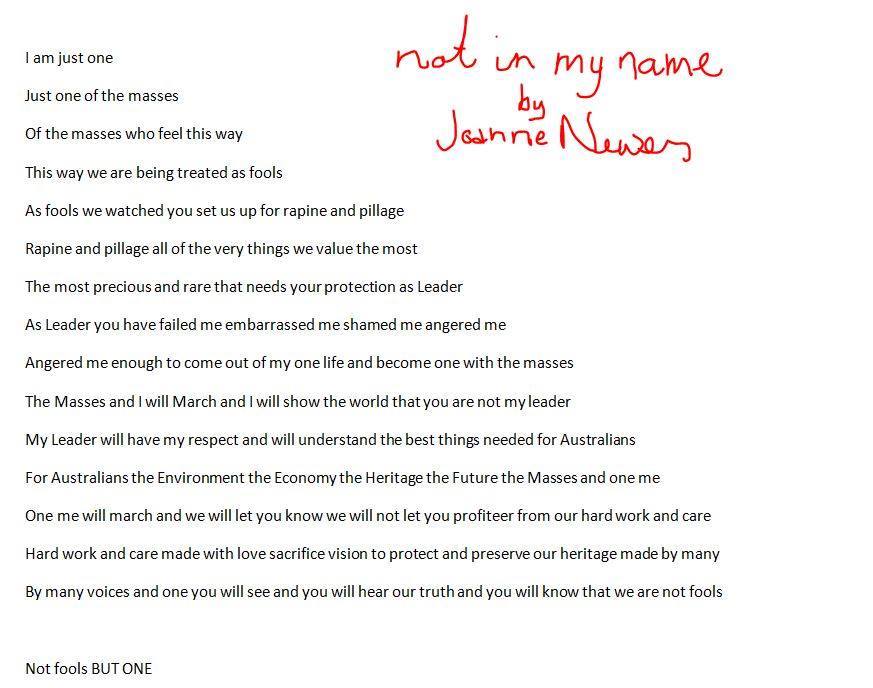 not in my name
by
Joanne
I am just one
Just one of the masses
Of the masses who feel this way
This way we are being treated as fools
As fools we watched you set us up for rapine and pillage
Rapine and pillage all of the very things we value the most
The most precious and rare that needs your protection as Leader
As Leader you have failed me embarrassed me shamed me angered me
Angered me enough to come out of my one life and become one with the masses
The Masses and I will March and I will show the world that you are not my leader
My Leader will have my respect and will understand the best things needed for Australians
For Australians the Environment the Economy the Heritage the Future the Masses and one me
One me will march and we will let you know we will not let you profiteer from our hard work and care
Hard work and care made with love sacrifice vision to protect and preserve our heritage made by many
By many voices and one you will see and you will hear our truth and you will know that we are not fools
Not fools BUT ONE